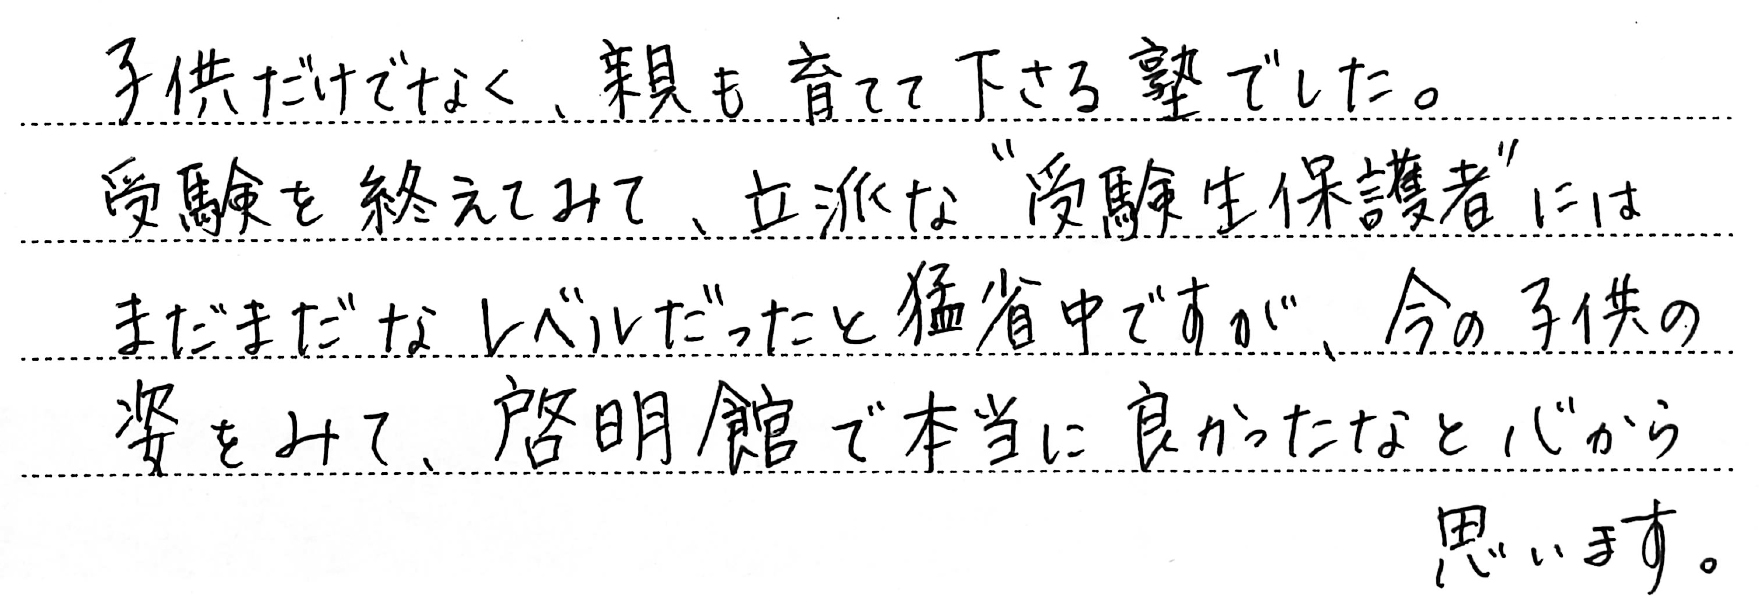 子供だけでなく、親も育てて下さる塾でした。
受験を終えてみて、立派な“受験生保護者”には
まだまだなレベルだったと猛省中ですが、今の子供の
姿をみて、啓明館で本当に良かったなと心から
思います。